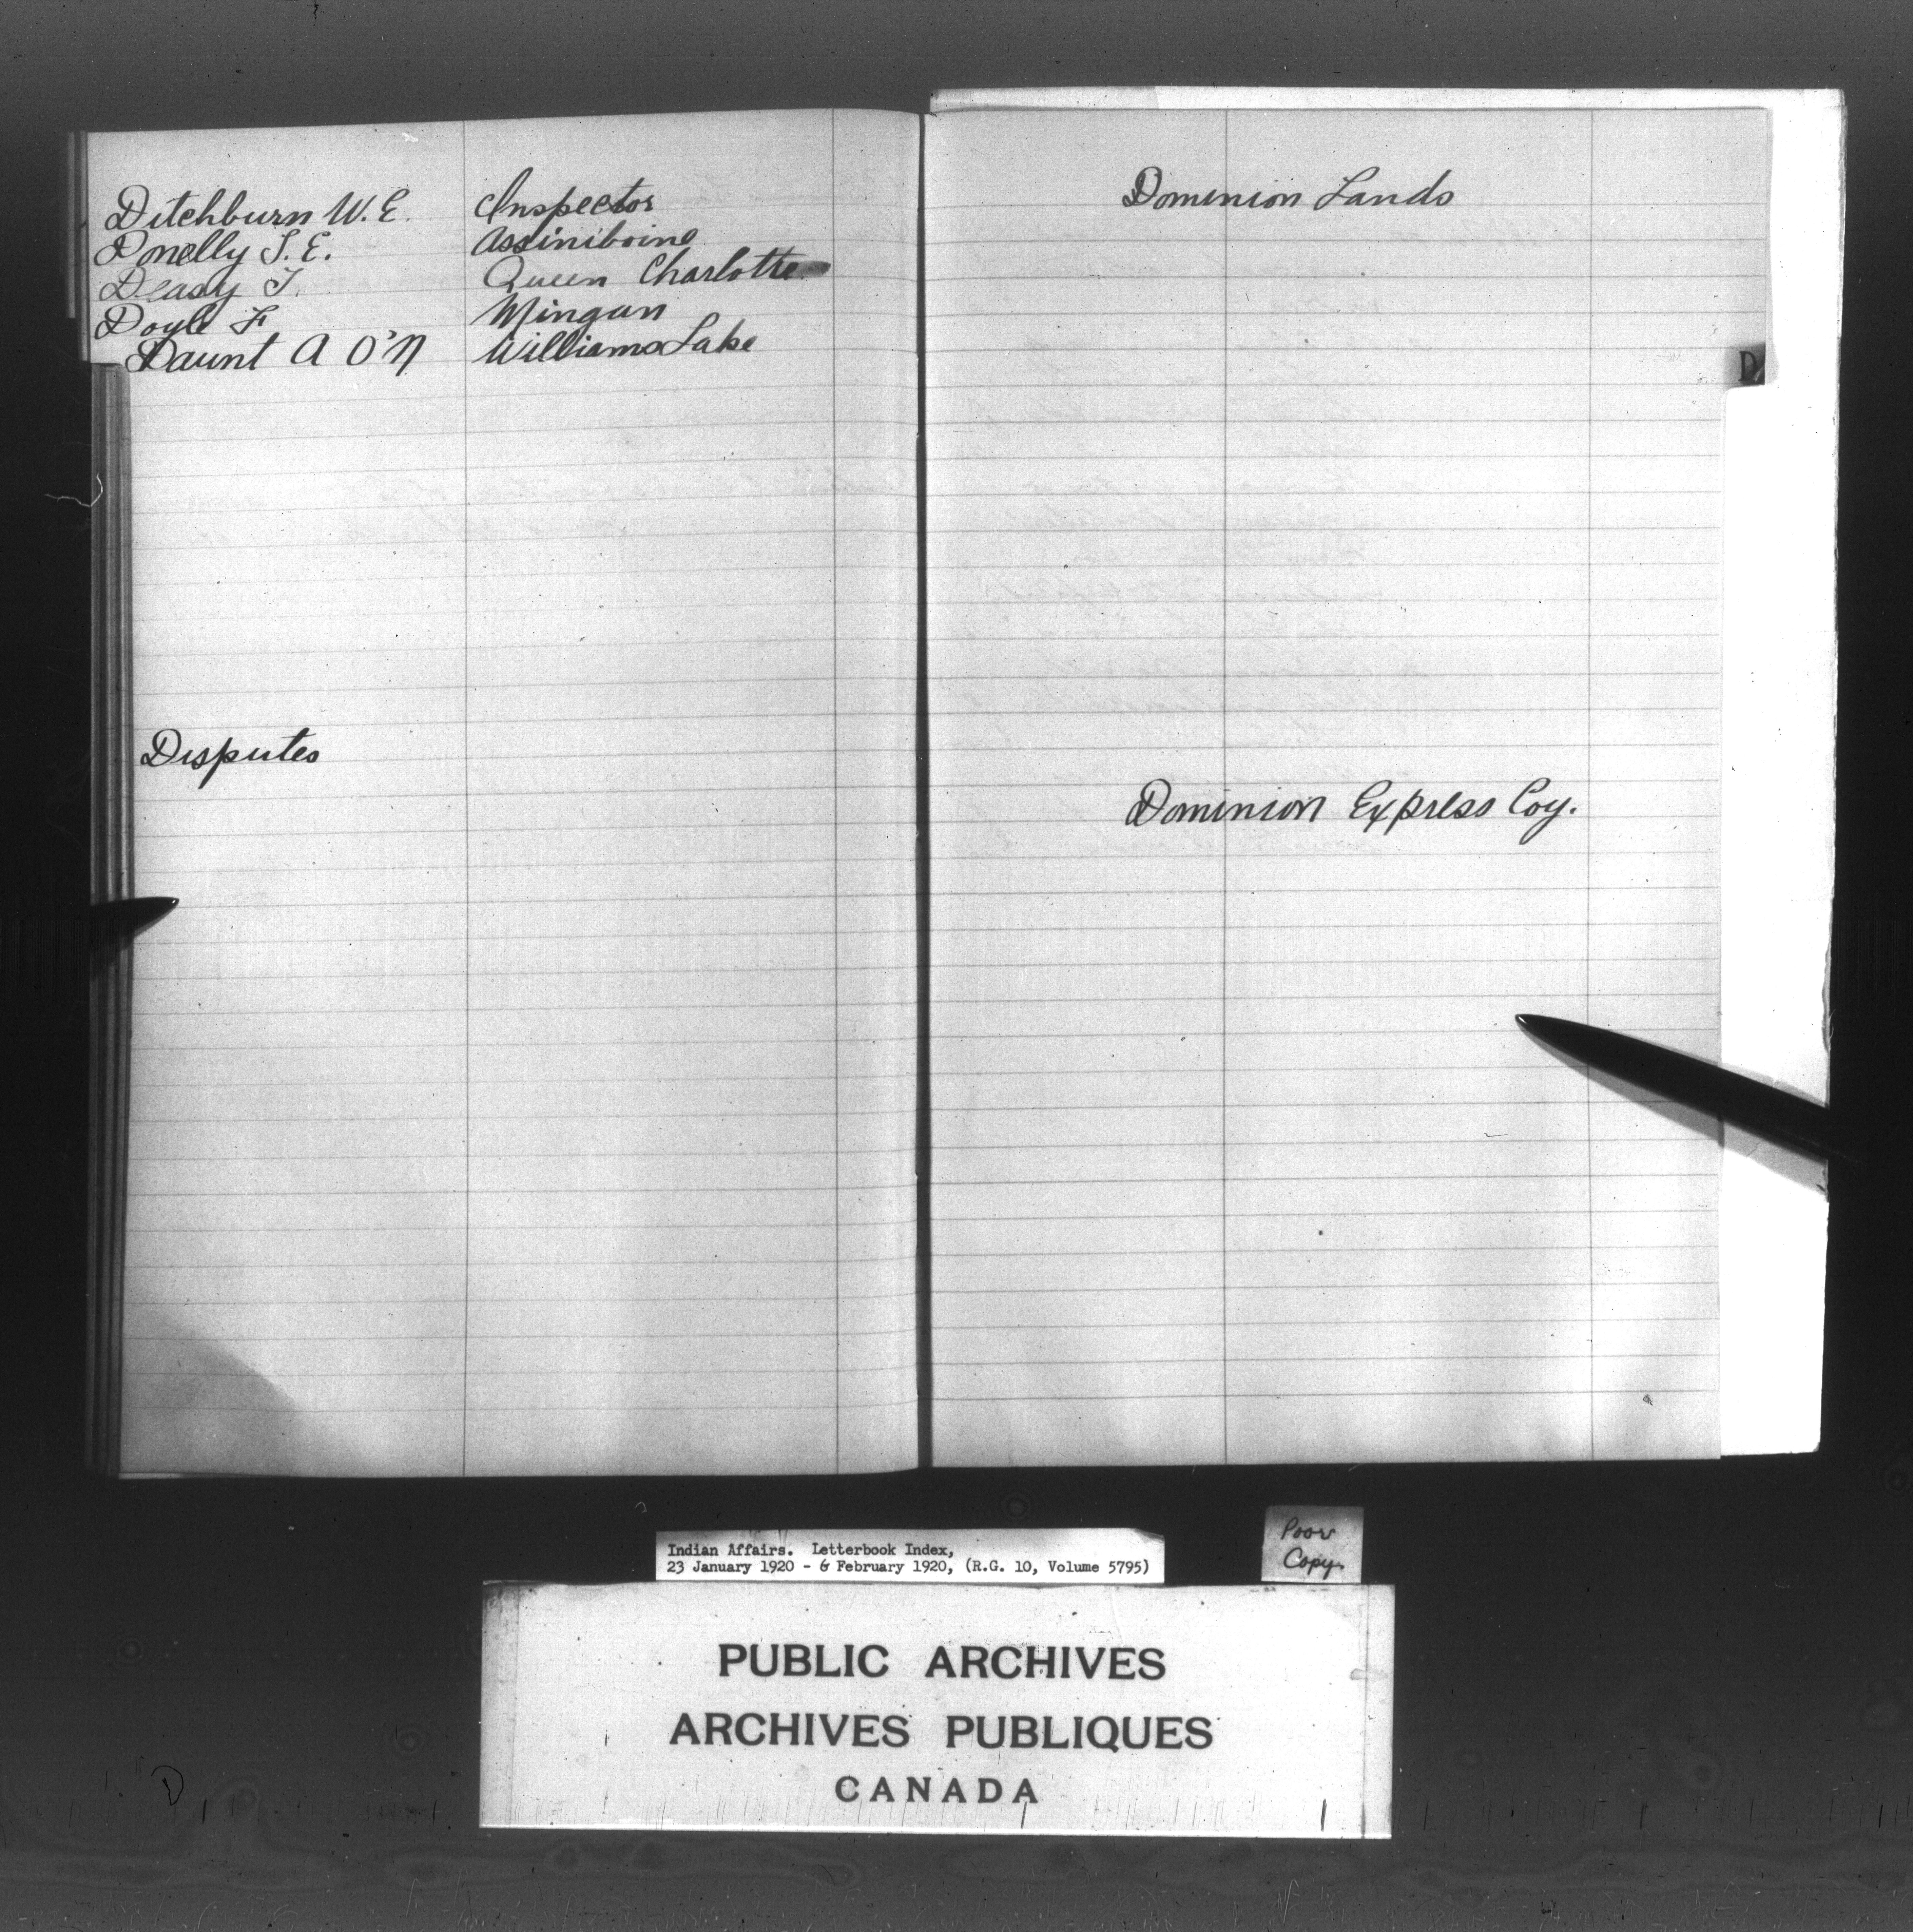 Ditchburn W. E. Inspector
Donelly T. E. Assiniboine
Deasy T. Queen Charlotte
Doyle F Mingan
Daunt A O'N Williams Lake
Disputes
Dominion Lands
D
Dominion Express Coy.
Indian Affairs. Letterbook Index,
23 January 1920 - 6 February 1920, (R.G. 10, Volume 5795)
Poor
Copy.
PUBLIC ARCHIVES
ARCHIVES PUBLIQUES
CANADA